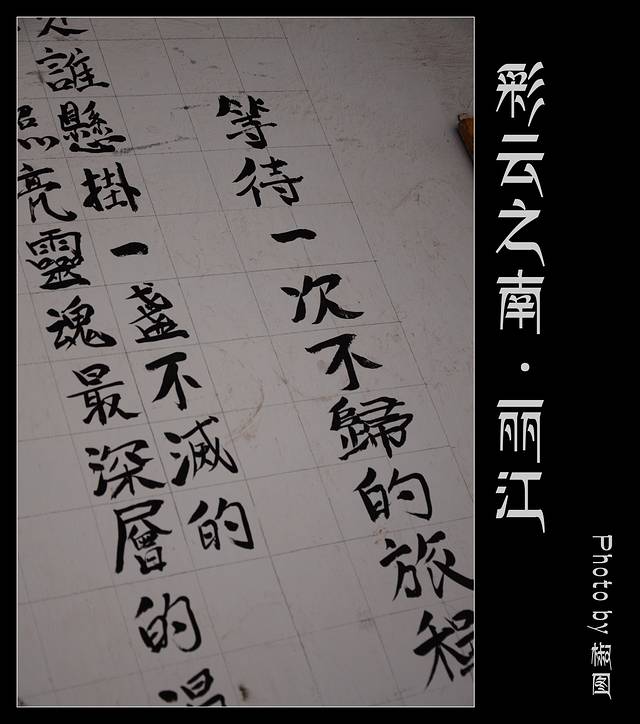 彩云之南·丽江
Photo by 椒图
等待一次不歸的旅程
誰懸掛一盞不滅的
照亮靈魂最深層的